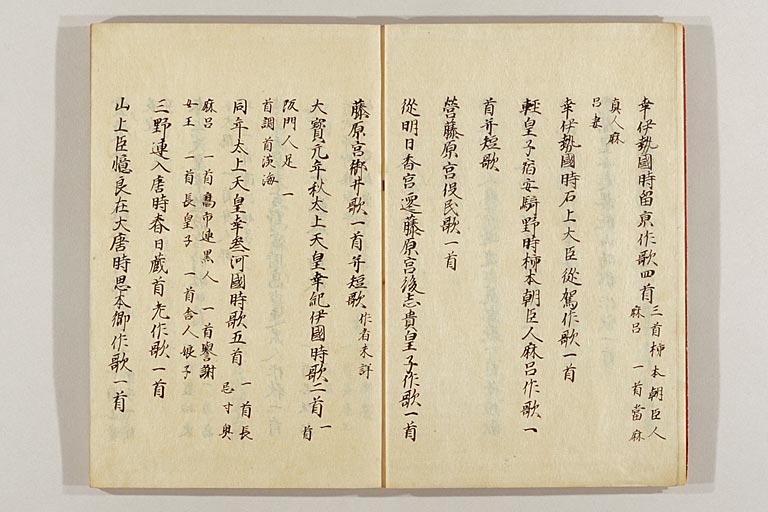 幸伊勢國時留京作歌四首 三首柿本朝臣人麻呂 一首當麻
真人麻呂妻
幸伊勢國時石上大臣從駕作歌一首
輕皇子宿安騎野時柿本朝臣人麻呂作歌一
首并短歌
營藤原宮役民歌一首
從明日香宮遷藤原宮後志貴皇子作歌一首
藤原宮御井歌一首并短歌 作者未詳
大寳元年秋太上天皇幸紀伊國時歌二首 一首
坂門人足 一首調首淡海
同年太上天皇幸叄河國時歌五首 一首長忌寸奥
麻呂 一首髙市連黒人 一首譽謝女王 一首長皇子 一首舎人娘子
三野連入唐時春日蔵首老作歌一首
山上臣憶良在大唐時思本郷作歌一首